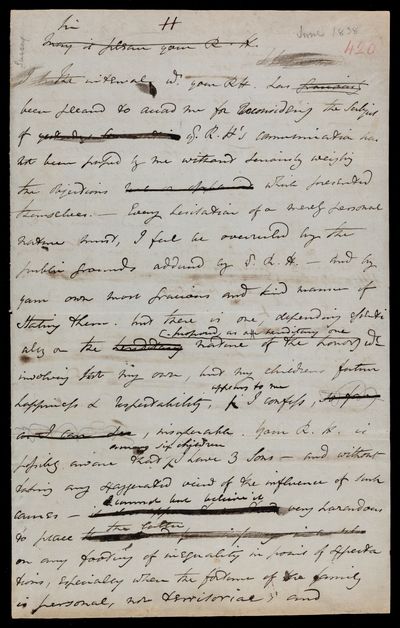 Sir
H
June 1838
420
May it please your R. H.
the interval, wh. your RH has graciously
been pleased to accord me for reconsidering the subject
of Y. R. H's communication has
not been passed by me without seriously weighing
the objections which presented
themselves. — Every hesitation of a merely personal
nature must, I feel be overruled by the
public grounds adduced by Y. R. H. — and by
your own most gracious and kind manner of
stating them. but there is one, depending essenti
ally on the hereditary nature of the honor, &
proposed, as an hereditary one
involving not my own, but my children's future
happiness & respectability, I confess, so far
appears to me
as I can see, insuperable. Your R. H. is
among six children
possibly aware that I have 3 Sons — and without
taking any exaggerated view of the influence of such
causes — I cannot but believe it very hazardous
to place the latter
on any footing of inequality in point of expecta
tions, especially when the fortune of the family
is personal, not territorial; and